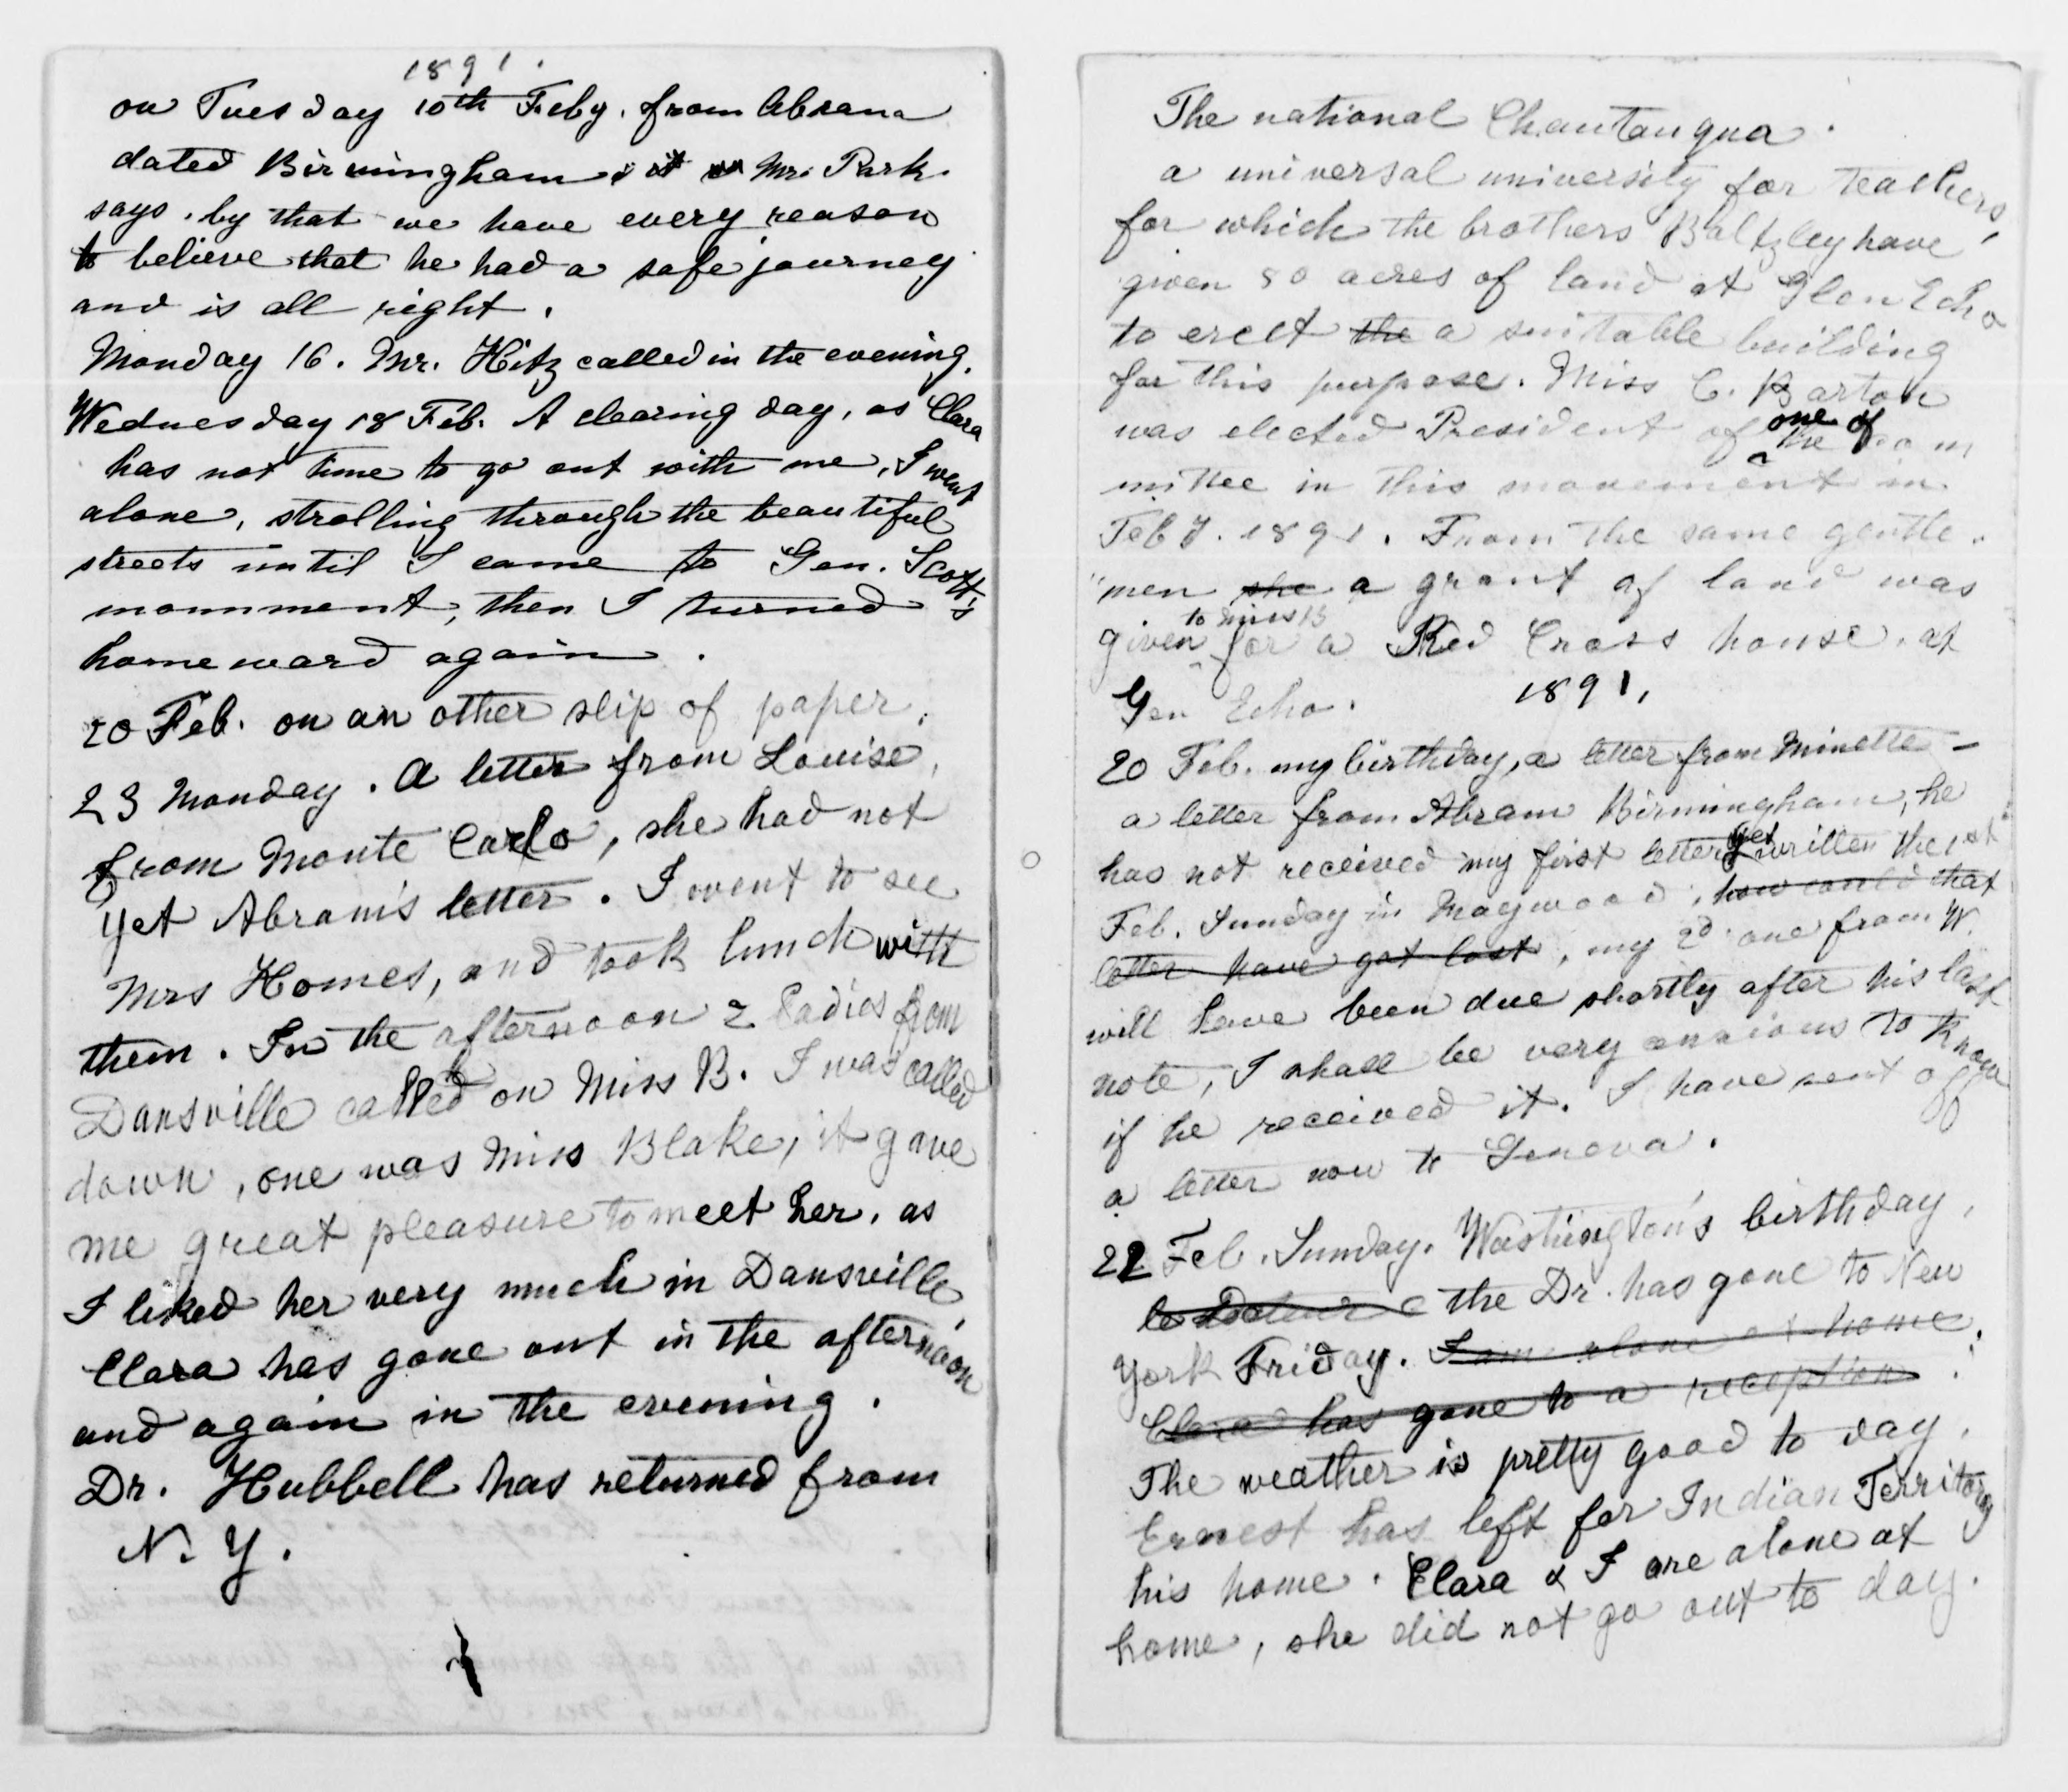 1891.
on Tuesday 10th Feby. from Abram
dated Birmingham, it Mr. Park
says, by that we have every reason
to believe that he had a safe journey
and is all right.
Monday 16. Mr. Hitz called in the evening.
Wednesday 18 Feb. A clearing day, as Clara
has not time to go out with me, I went
alone, strolling through the beautiful
streets until I came to Gen. Scott's
monument, then I turned
homeward again.
20 Feb. on an other slip of paper.
23 Monday. A letter from Louise,
from Monte Carlo, she had not
yet Abram's letter. I went to see
Mrs Homes, and took lunch with
them. In the afternoon 2 ladies from
Dansville called on Miss B. I was called
down, one was Miss Blake, it gave
me great pleasure to meet her, as
I liked her very much in Dansville,
Clara has gone out in the afternoon
and again in the evening.
Dr. Hubbell has returned from
N. Y.
The national Chautauqua.
a universal university for teachers,
for which the brothers Baltzley have
given 80 acres of land at Glen Echo
to erect the a suitable building
for this purpose. Miss C. Barton
was elected President of one of the com
mittee in this movement in
Feby. 1891. From the same gentle-
"men she a grant of land was
given to Miss B for a Red Cross house, at
Gen Echo. 1891,
20 Feb. my birthday, a letter from Minette -
a letter from Abram Birmingham, he
has not received my first letter yet written the 1st
Feb. Sunday in Maywood, how could that
letter have got lost, my 2d one from W.
will have been due shortly after his last
note, I shall be very anxious to know
if he received it. I have sent off
a letter now to Geneva.
22 Feb. Sunday. Washington's birthday,
le Docteur the Dr. has gone to New
York Friday. I am alone at home.
Clara has gone to a reception.
The weather is pretty good to day,
Ernest has left for Indian Territory
his home. Clara & I are alone at
home, she did not go out to day.